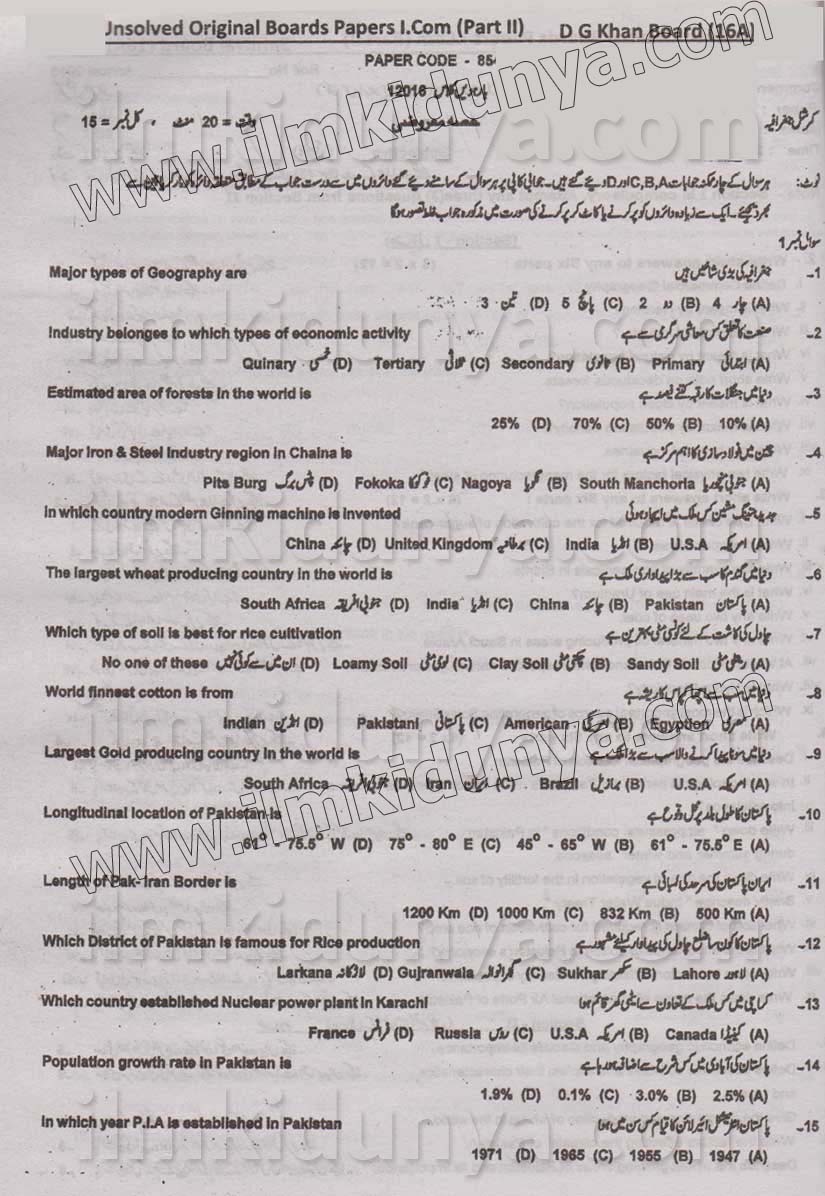 Unsolved Original Boards Papers I.Com (Part II) D G Khan Board (16A)
PAPER CODE - 85
12016 گیارہویں کلاس
کمرشل جغرافیہ حصہ معروضی وقت = 20 منٹ ، کل نمبر = 15
نوٹ: ہر سوال کے چار ممکنہ جوابات C,B,A اور D دیئے گئے ہیں۔ جوابی کاپی پر ہر سوال کے سامنے دیئے گئے دائروں میں سے درست جواب کے مطابق متعلقہ دائرہ کو مارکر یا پین سے
بھر دیجئے۔ ایک سے زیادہ دائروں کو پر کرنے یا کاٹ کر پر کرنے کی صورت میں مذکورہ جواب غلط تصور ہو گا
سوال نمبر 1
Major types of Geography are جغرافیہ کی بڑی شاخیں ہیں 1۔
(A) چار 4 (B) دو 2 (C) پانچ 5 (D) تین 3
Industry belonges to which types of economic activity صنعت کا تعلق کس معاشی سرگری سے ہے 2۔
(A) ابتدائی Primary (B) ثانوی Secondary (C) ثلاثی Tertiary (D) خمسی Quinary
Estimated area of forests in the world is دنیا میں جنگلات کا رقبہ کتنے فیصد ہے 3۔
(A) 10% (B) 50% (C) 70% (D) 25%
Major Iron & Steel Industry region in Chaina is چین میں فولاد سازی کا اہم مرکز ہے 4۔
(A) جنوبی منچوریا South Manchoria (B) نگویا Nagoya (C) فوکوکا Fokoka (D) پٹس برگ Pits Burg
In which country modern Ginning machine is invented جدید جننگ مشین کس ملک میں ایجاد ہوئی 5۔
(A) امریکہ U.S.A (B) انڈیا India (C) برطانیہ United Kingdom (D) چائنہ China
The largest wheat producing country in the world is دنیا میں گندم کا سب سے بڑا پیداواری ملک ہے 6۔
(A) پاکستان Pakistan (B) چائنہ China (C) انڈیا India (D) جنوبی افریقہ South Africa
Which type of soil is best for rice cultivation چاول کی کاشت کے لئے کونسی مٹی بہترین ہے 7۔
(A) ریتلی مٹی Sandy Soil (B) چکنی مٹی Clay Soil (C) لومی مٹی Loamy Soil (D) ان میں سے کوئی نہیں No one of these
World finnest cotton is from دنیا میں سب سے اچھا کپاس کا ریشہ ہے 8۔
(A) مصری Egyption (B) امریکی American (C) پاکستانی Pakistani (D) انڈین Indian
Largest Gold producing country in the world is دنیا میں سونا پیدا کرنے والا سب سے بڑا ملک ہے 9۔
(A) امریکہ U.S.A (B) برازیل Brazil (C) ایران Iran (D) جنوبی افریقہ South Africa
Longitudinal location of Pakistan is پاکستان کا طول بلد پر محل وقوع ہے 10۔
(A) 61° - 75.5° E (B) 45° - 65° W (C) 75° - 80° E (D) 61° - 75.5° W
Length of Pak- Iran Border is ایران پاکستان کی سرحد کی لمبائی ہے 11۔
(A) 500 Km (B) 832 Km (C) 1000 Km (D) 1200 Km
Which District of Pakistan is famous for Rice production پاکستان کا کون سا ضلع چاول کی پیداوار کیلئے مشہور ہے 12۔
(A) لاہور Lahore (B) سکھر Sukhar (C) گجرانوالہ Gujranwala (D) لاڑکانہ Larkana
Which country established Nuclear power plant in Karachi کراچی میں کس ملک کے تعاون سے ایٹمی بجلی گھر قائم ہوا 13۔
(A) کینیڈا Canada (B) امریکہ U.S.A (C) روس Russia (D) فرانس France
Population growth rate in Pakistan is پاکستان کی آبادی میں کس شرح سے اضافہ ہو رہا ہے 14۔
(A) 2.5% (B) 3.0% (C) 0.1% (D) 1.9%
In which year P.I.A is established in Pakistan پاکستان انٹرنیشنل ائیر لائن کا قیام کس سن میں ہوا 15۔
(A) 1947 (B) 1955 (C) 1965 (D) 1971
www.ilmkidunya.com
www.ilmkidunya.com
ilmkidunya.com